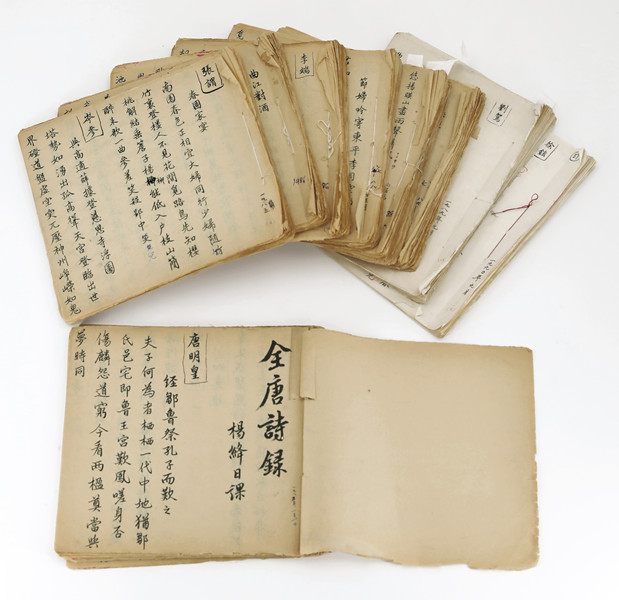 張謂
春園家宴
南園春色正相宜大婦同行少婦隨
竹裏登樓人不見花間覓路鳥先知櫻
桃解結垂簷子楊柳能低入戶枝山簡
醉來歌一曲參差笑殺郢中兒
岑參
與高適薛據登慈恩寺浮圖
塔勢如湧出孤高聳天宮登臨出世
界磴道盤虛空突兀壓神州崢嶸如鬼
曲江對酒
節婦吟寄東平李司空
劉駕
全唐詩録
楊絳日課
唐明皇
經鄒魯祭孔子而歎之
夫子何為者栖栖一代中地猶鄹
氏邑宅即魯王宮歎鳳嗟身否
傷麟怨道窮今看兩楹奠當與
夢時同